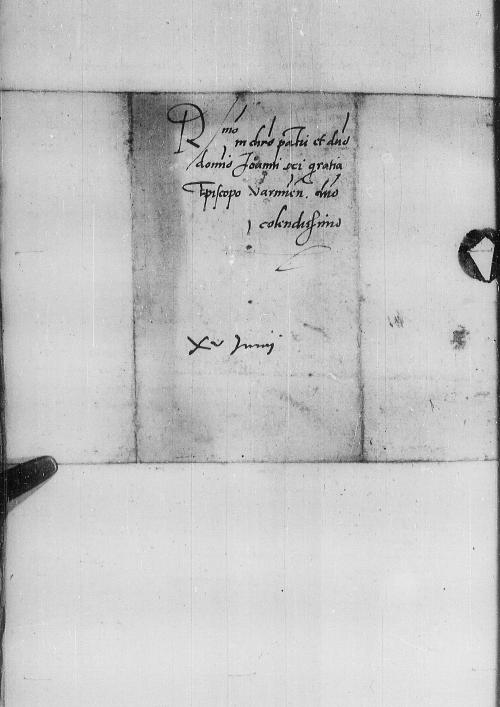 R mo
in chro patri et dno
domno Joanni dei gratia
Episcopo Varmien. dno
colendissimo
Xv Junij